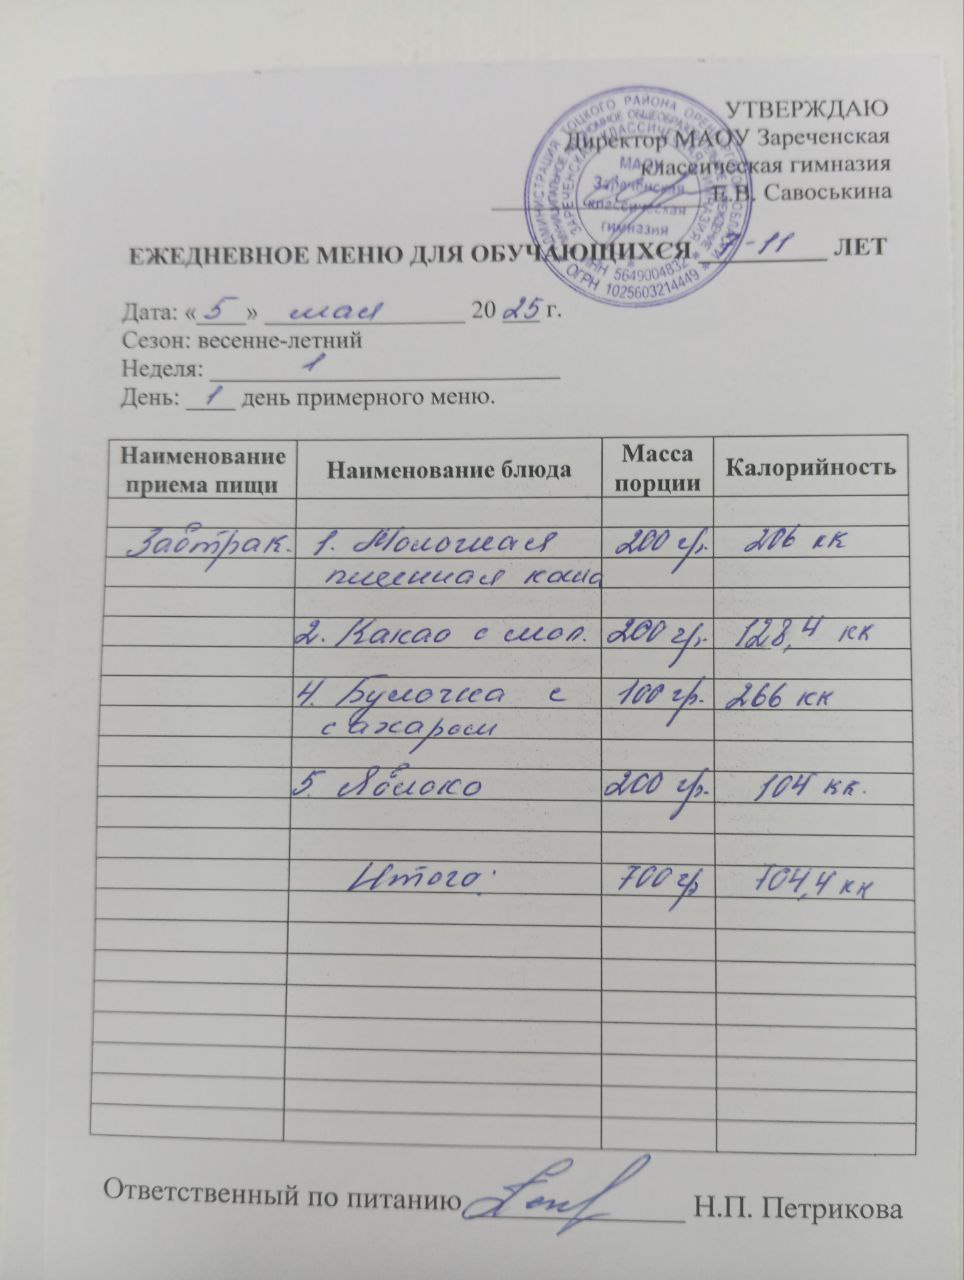 УТВЕРЖДАЮ
Директор МАОУ Зареченская
классическая гимназия
Е.В. Савоськина
АДМИНИСТРАЦИЯ ТОЦКОГО РАЙОНА ОРЕНБУРГСКОЙ ОБЛАСТИ
ЗАРЕЧЕНСКАЯ КЛАССИЧЕСКАЯ ГИМНАЗИЯ
МАОУ
Зареченская
классическая
гимназия
* ИНН 5649004832 *
* ОГРН 1025603214449 *
ЕЖЕДНЕВНОЕ МЕНЮ ДЛЯ ОБУЧАЮЩИХСЯ 7-11 ЛЕТ
Дата: «5» мая 2025 г.
Сезон: весенне-летний
Неделя: 1
День: 1 день примерного меню.
Наименование приема пищи Наименование блюда Масса порции Калорийность
Завтрак. 1. Молочная 200 гр. 206 кк
пшенная каша
2. Какао с мол. 200 гр. 128,4 кк
4. Булочка с 100 гр. 266 кк
сахаром
5 Яблоко 200 гр. 104 кк.
Итого: 700 гр 704,4 кк
Ответственный по питанию Н.П. Петрикова